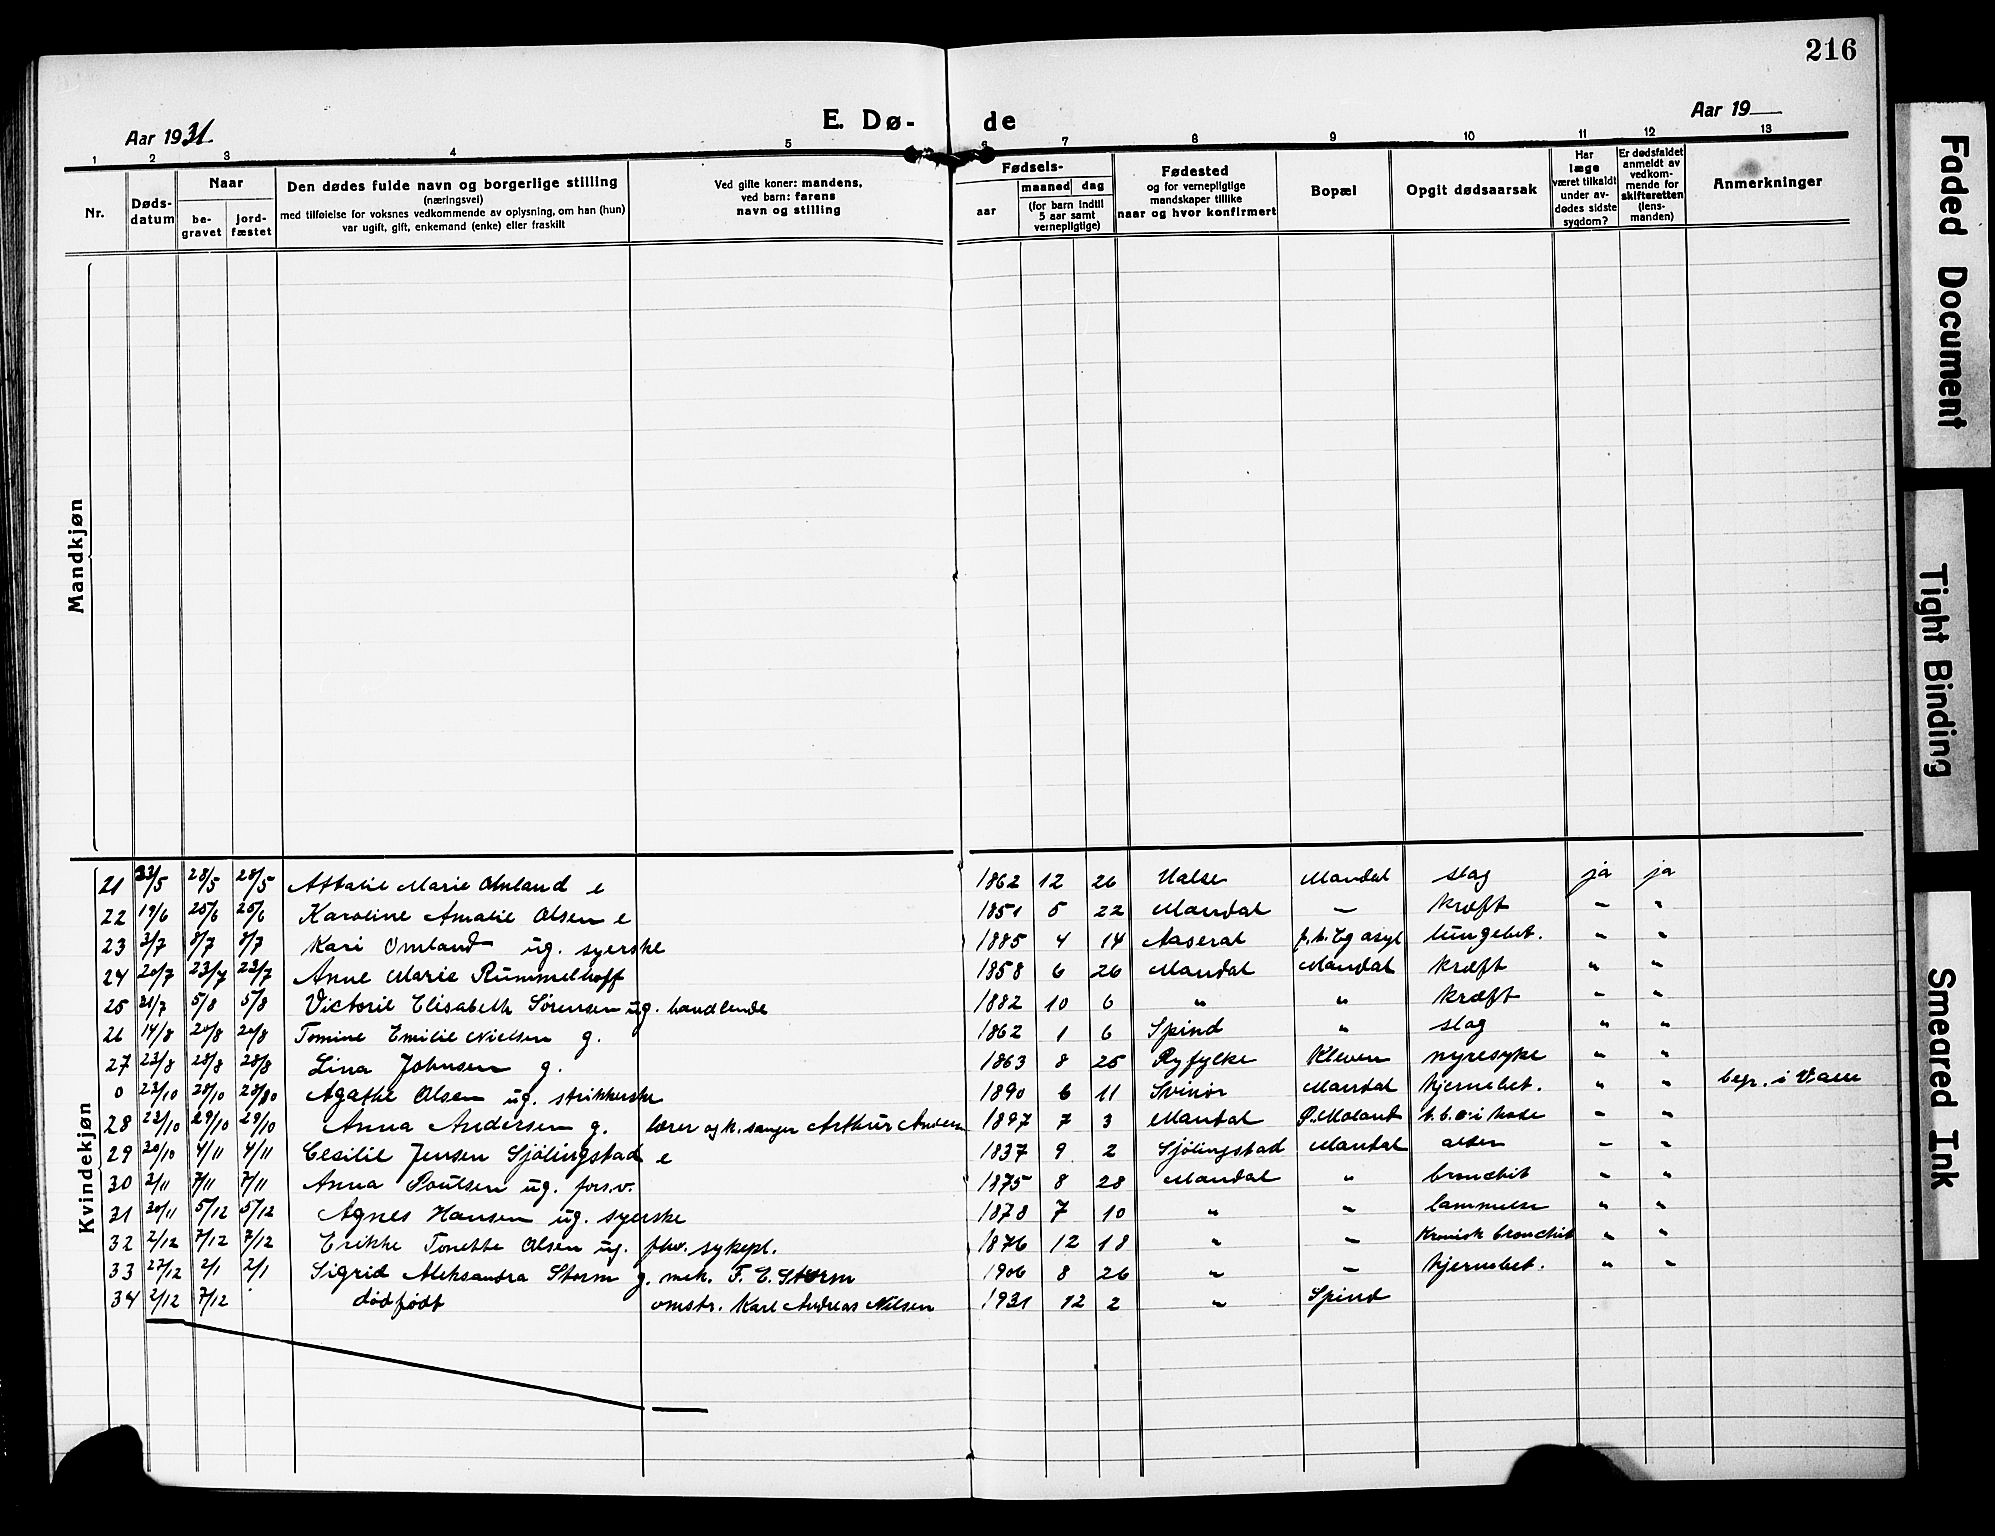 216
E. Dø- de
Aar 1931
Aar 19
1 2 3 4 5 6 7 8 9 10 11 12 13
Nr.
Døds-
datum
Naar
be-
gravet
jord-
fæstet
Den dødes fulde navn og borgerlige stilling
(næringsvei)
med tilføielse for voksnes vedkommende av oplysning, om han (hun)
var ugift, gift, enkemand (enke) eller fraskilt
Ved gifte koner: mandens,
ved barn: farens
navn og stilling
Fødsels-
aar
maaned dag
(for barn indtil
5 aar samt
vernepligtige)
Fødested
og for vernepligtige
mandskaper tillike
naar og hvor konfirmert
Bopæl
Opgit dødsaarsak
Har
læge
været tilkaldt
under av-
dødes sidste
sygdom?
Er dødsfaldet
anmeldt av
vedkom-
mende for
skifteretten
(lens-
manden)
Anmerkninger
Mandkjøn
Kvindekjøn
21 23/5 28/5 28/5 Attalie Marie Omland e 1862 12 26 Halse Mandal slag ja ja
22 19/6 25/6 25/6 Karoline Amalie Olsen e 1851 5 22 Mandal — kræft " "
23 3/7 8/7 8/7 Kari Omland ug. syerske 1885 4 14 Aaseral Eg asyl lungebet. " "
24 20/7 23/7 23/7 Anne Marie Rummelhoff 1858 6 26 Mandal Mandal kræft " "
25 31/7 5/8 5/8 Victorie Elisabeth Sørensen ug. handlende 1882 10 6 " " kræft " "
26 14/8 20/8 20/8 Tomine Emilie Nielsen g. 1862 1 6 Spind " slag " "
27 23/8 28/8 28/8 Lina Johnsen g. 1863 8 25 Ryfylke Kleven nyresyke " "
0 23/10 28/10 28/10 Agathe Olsen ug. strikkerske 1890 6 11 Svinør Mandal hjernebet. " " begr. i Valle
28 23/10 29/10 29/10 Anna Andersen g. lærer og k. sanger Arthur Andersen 1897 7 3 Mandal Ø. Moland " "
29 30/10 4/11 4/11 Cesilie Jensen Sjölingstad e 1837 9 2 Sjölingstad Mandal alder " "
30 2/11 7/11 7/11 Anna Poulsen ug. fors.v. 1875 8 28 Mandal " bronchit " "
31 30/11 5/12 5/12 Agnes Hansen ug. syerske 1878 7 10 " " lammelse " "
32 2/12 7/12 7/12 Erikke Tonette Olsen ug. fhv. sykepl. 1876 12 18 " " Kronisk bronchit " "
33 27/12 2/1 2/1 Sigrid Aleksandra Storm g. mek. F. E. Storm 1906 8 26 " " hjernebet. " "
34 2/12 7/12 dødfødt omstr. Karl Andreas Nilsen 1931 12 2 " Spind
Faded Document
Tight Binding
Smeared Ink